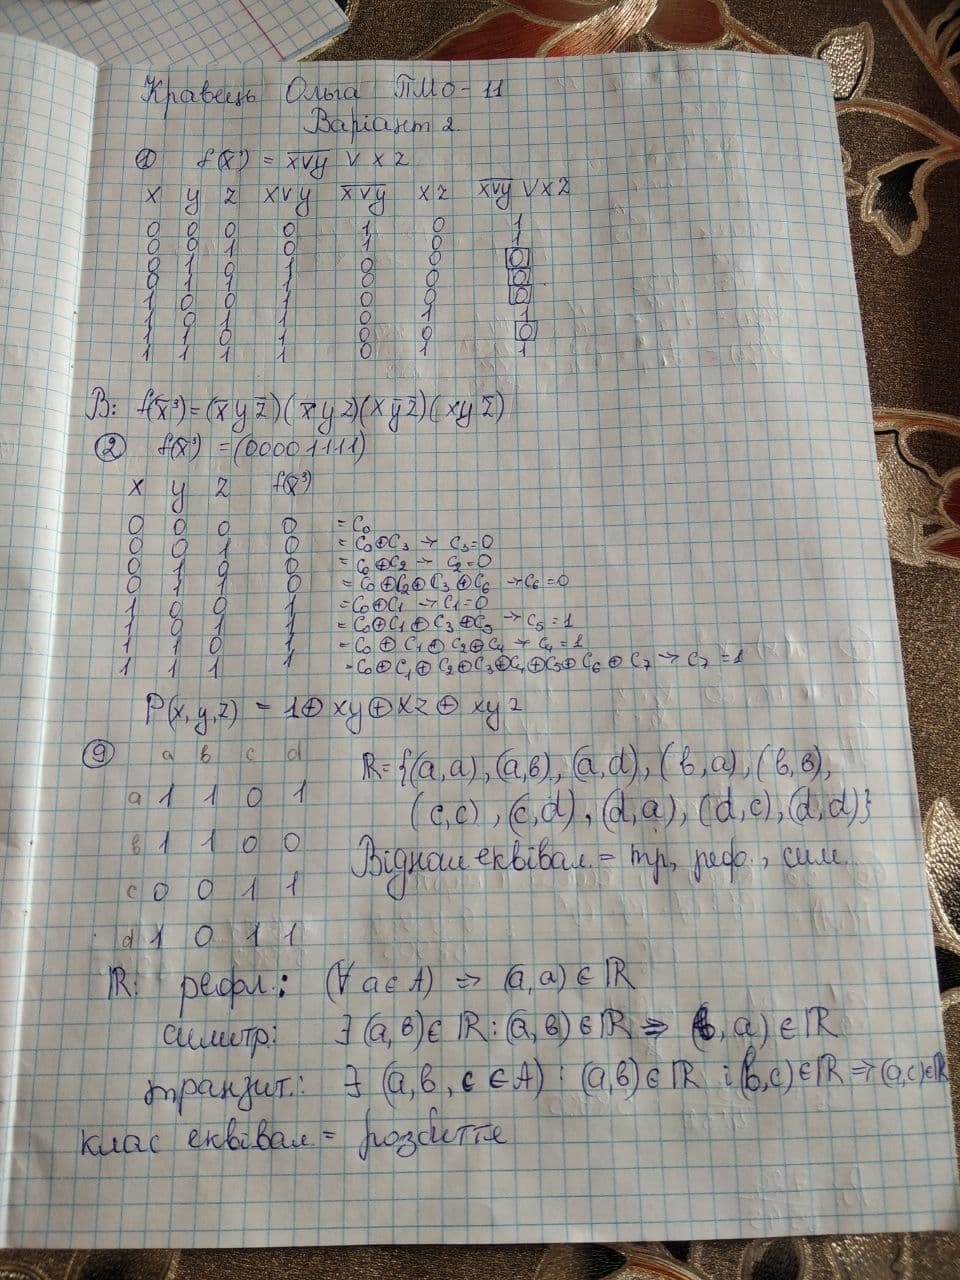 Кравець Ольга ПМО-11
Варіант 2
① f(x̄³) = \overline{x∨y} ∨ xz
x y z x∨y \overline{x∨y} xz \overline{x∨y} ∨ xz
0 0 0 0 1 0 1
0 0 1 0 1 0 1
0 1 0 1 0 0 0
0 1 1 1 0 0 0
1 0 0 1 0 0 0
1 0 1 1 0 1 1
1 1 0 1 0 0 0
1 1 1 1 0 1 1
В: f(x̄³)=(x̄ y z̄)(x̄ y z)(x ȳ z̄)(x y z̄)
② f(x̄³) = (00001111)
x y z f(x̄³)
0 0 0 0 = C₀
0 0 1 0 = C₀⊕C₃ → C₃=0
0 1 0 0 = C₀⊕C₂ → C₂=0
0 1 1 0 = C₀⊕C₂⊕C₃⊕C₆ → C₆=0
1 0 0 1 = C₀⊕C₁ → C₁=0
1 0 1 1 = C₀⊕C₁⊕C₃⊕C₅ → C₅=1
1 1 0 1 = C₀⊕C₁⊕C₂⊕C₄ → C₄=1
1 1 1 1 = C₀⊕C₁⊕C₂⊕C₃⊕C₄⊕C₅⊕C₆⊕C₇ → C₇=1
P(x,y,z) = 1⊕xy⊕xz⊕xyz
⑨ a в c d
a 1 1 0 1
в 1 1 0 0
c 0 0 1 1
d 1 0 1 1
ℝ={(a,a),(a,в),(a,d),(в,a),(в,в),
(c,c),(c,d),(d,a),(d,c),(d,d)}
Віднош еквівал. = тр, реф., сим.
ℝ: рефл.: (∀ a∈A) ⇒ (a,a)∈ℝ
симитр: ∃(a,в)∈ℝ:(a,в)∈ℝ ⇒ (в,a)∈ℝ
транзит.: ∃ (a,в,c∈A): (a,в)∈ℝ і (в,c)∈ℝ⇒(a,c)∈ℝ
клас еквівал = розбиття